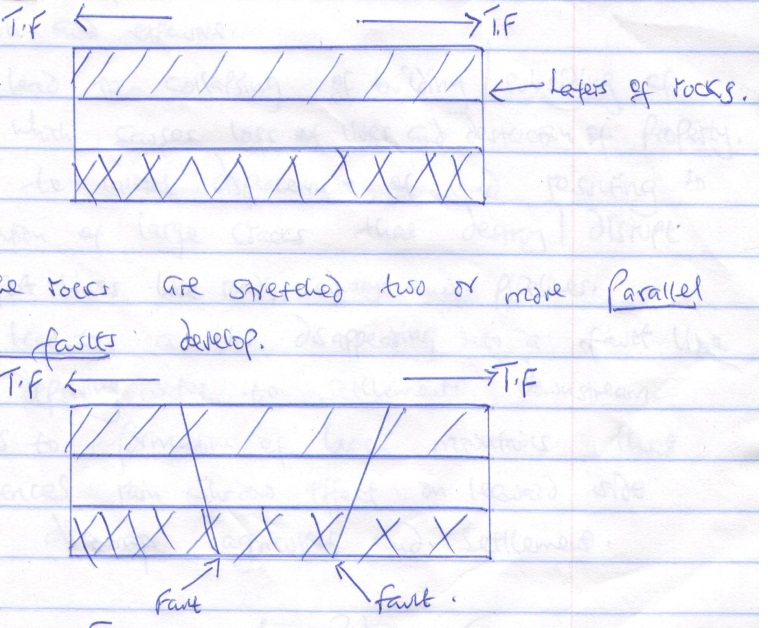 T.F T.F
Layers of rocks.
rocks are stretched two or more Parallel
faults develop.
T.F T.F
Fault fault.